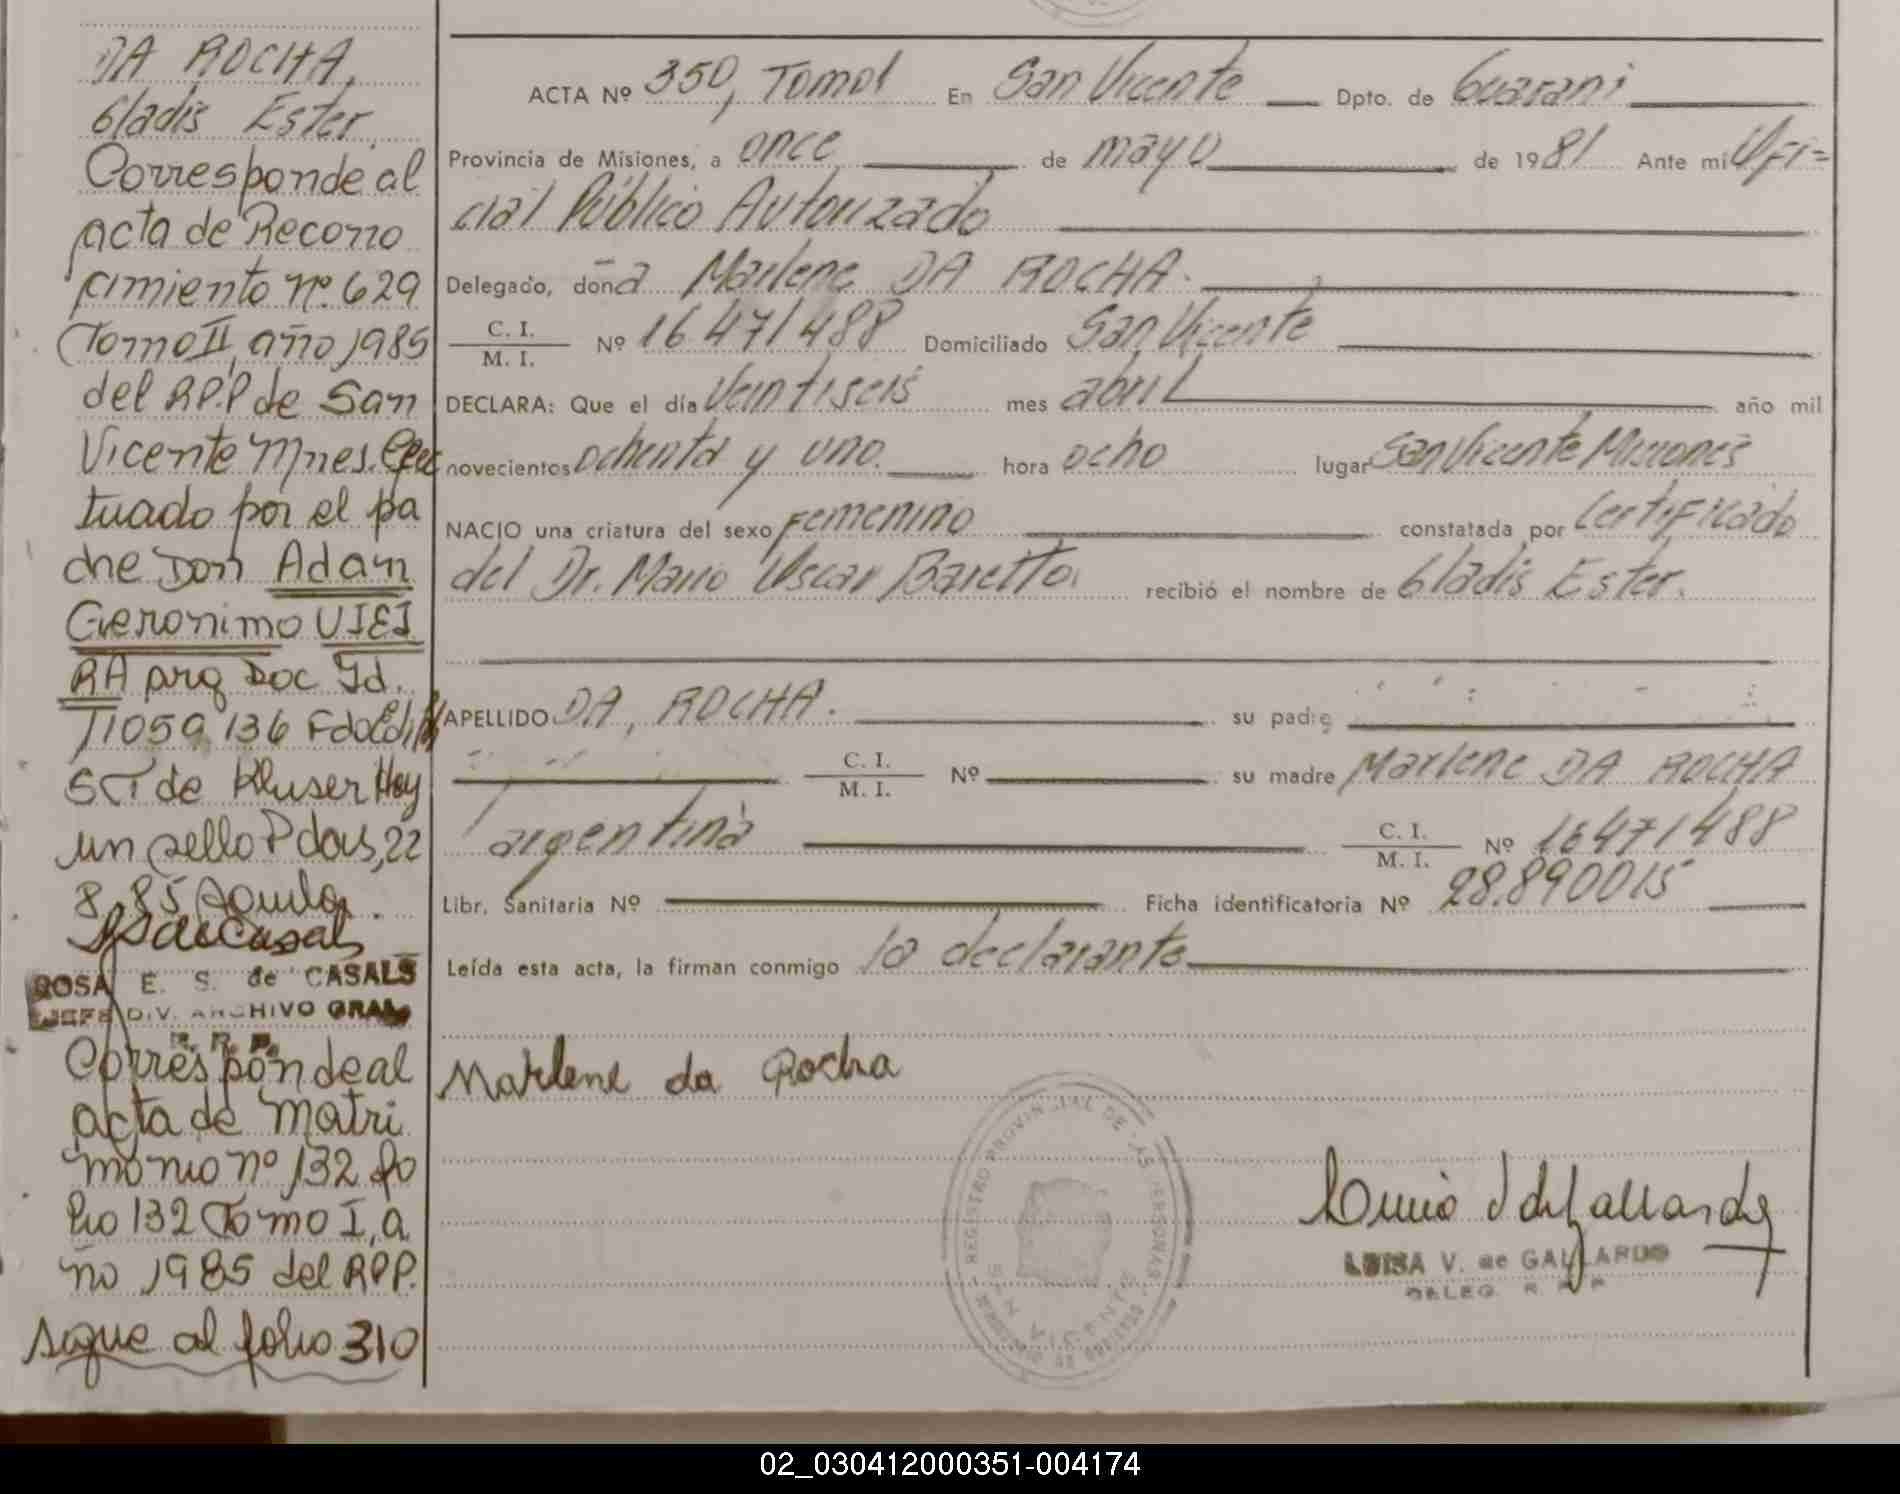 DA ROCHA,
Gladis Ester.
Corresponde al
acta de Recono
cimiento nº. 629
Tomo II, año 1985
del RP.P de San
Vicente Mnes. Efec
tuado por el pa
dre Don Adan
Geronimo VIEI
RA arg Doc Id.
11059136 Fdo
S T de Kluser Hay
un sello P das, 22
8.85
ROSA E. S. de CASALS
JEFE DIV. ARCHIVO GRAL.
R. R. P.
Corresponde al
acta de Matri
monio nº 132 fo
lio 132 Tomo I, a
ño 1985 del RPP.
sigue al folio 310
ACTA Nº 350, TomoI En San Vicente Dpto. de Guarani
Provincia de Misiones, a once de mayo de 1981 Ante mi Ofi=
cial Público Autorizado
Delegado, doña Marlene DA ROCHA.
C. I.
M. I. Nº 16471488 Domiciliado San Vicente
DECLARA: Que el día Veintiseis mes abril año mil
novecientos ochenta y uno. hora ocho lugar San Vicente Misiones
NACIO una criatura del sexo Femenino constatada por Certificado
del Dr. Mario Oscar Baretto. recibió el nombre de Gladis Ester.
APELLIDO DA, ROCHA. su padre
C. I.
M. I. Nº su madre Marlene DA ROCHA
argentina C. I.
M. I. Nº 16471488
Libr. Sanitaria Nº Ficha identificatoria Nº 28.890015
Leída esta acta, la firman conmigo la declarante
Marlene da Rocha
REGISTRO PROVINCIAL DE LAS PERSONAS
SAN VICENTE
LUISA V. de GALLARDO
DELEG. R. P. P.
02_030412000351-004174